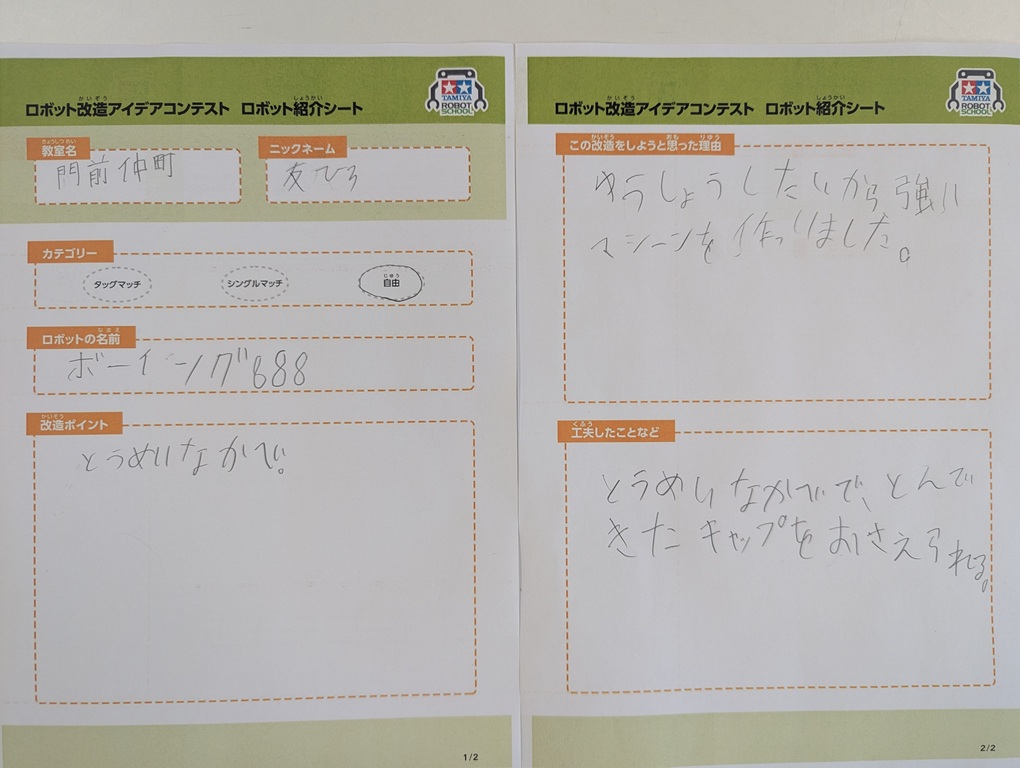 ロボット改造アイデアコンテスト ロボット紹介シート
TAMIYA
ROBOT
SCHOOL
教室名
門前仲町
ニックネーム
友ひろ
カテゴリー
タッグマッチ
シングルマッチ
自由
ロボットの名前
ボーイング688
改造ポイント
とうめいなかべ。
1/2
ロボット改造アイデアコンテスト ロボット紹介シート
TAMIYA
ROBOT
SCHOOL
この改造をしようと思った理由
ゆうしょうしたいから強い
マシーンを作りました。
工夫したことなど
とうめいなかべで、とんで
きたキャップをおさえられる。
2/2